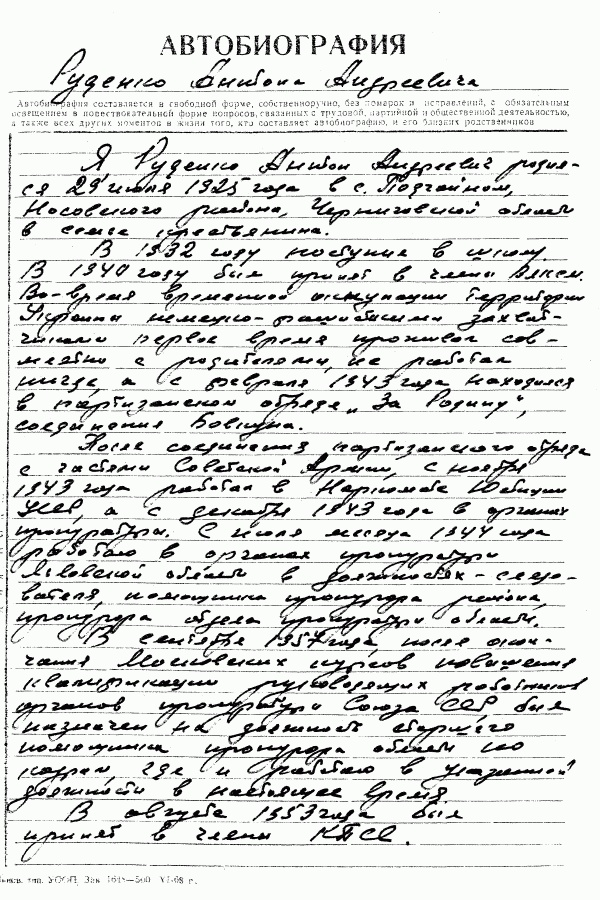 АВТОБИОГРАФИЯ
Руденко Антона Андреевича
Автобиография составляется в свободной форме, собственноручно, без помарок и исправлений, с обязательным
освещением в повествовательной форме вопросов, связанных с трудовой, партийной и общественной деятельностью,
а также всех других моментов в жизни того, кто составляет автобиографию, и его близких родственников
Я Руденко Антон Андреевич родил-
ся 29 июля 1925 года в с.
Носовского района, Черниговской области
в семье крестьянина.
В 1932 году поступил в школу.
В 1940 году был принят в члены ВЛКСМ.
Во-время временной оккупации территории
Украины немецко-фашистскими захват-
чиками первое время проживал сов-
местно с родителями, не работал
нигде, а с февраля 1943 года находился
в партизанском отряде „За Родину",
соединения Бовкуна.
После соединения партизанского отряда
с частями Советской Армии, с ноября
1943 года работал в Наркомате Юстиции
УССР, а с декабря 1943 года в органах
прокуратуры. С июля месяца 1944 года
работаю в органах прокуратуры
Львовской области в должностях - следо-
вателя, помощника прокурора района,
прокурора отдела прокуратуры области.
В сентябре 1957 года, после окон-
чания Московских курсов повышения
квалификации руководящих работников
органов прокуратуры Союза ССР, был
назначен на должность старшего
помощника прокурора области по
кадрам, где и работаю в указанной
должности в настоящее время
В августе 1953 года был
принят в члены КПСС.
тип. УООП, Зак. 1648—500 VI-68 г.